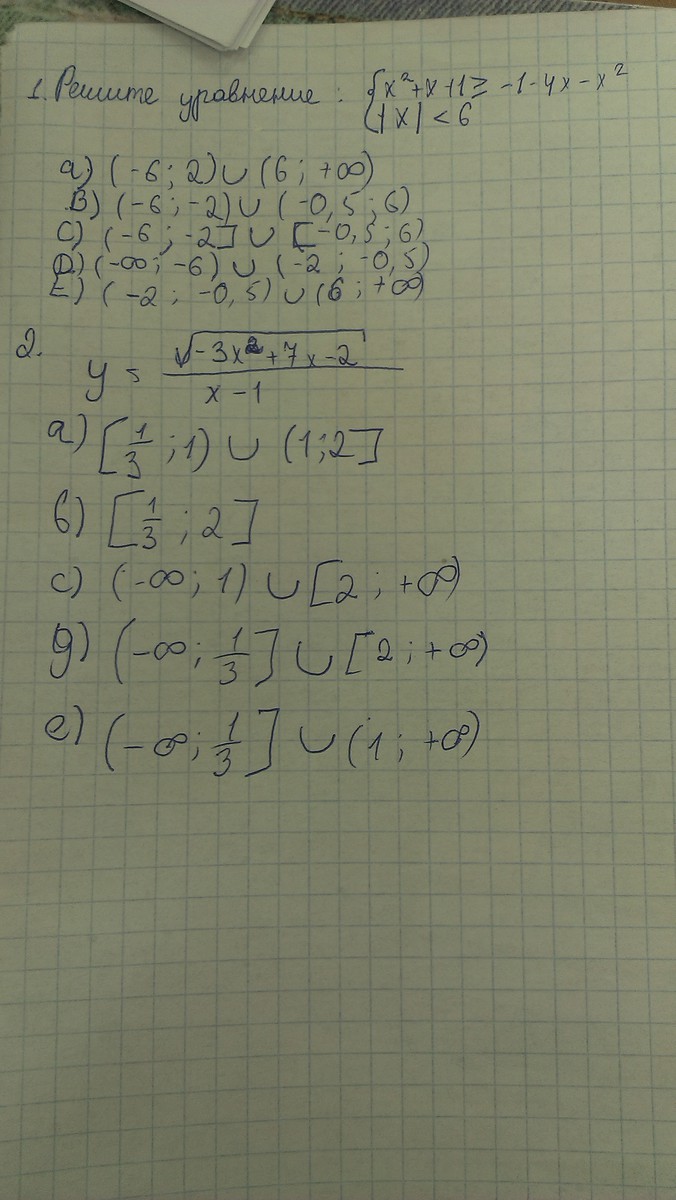 1. Решите уравнение: { x²+x+1 ≥ -1-4x-x²
|x| < 6
a) (-6; 2) ∪ (6; +∞)
B) (-6; -2) ∪ (-0,5; 6)
C) (-6; -2] ∪ [-0,5; 6)
D) (-∞; -6) ∪ (-2; -0,5)
E) (-2; -0,5) ∪ (6; +∞)
2. y = √-3x²+7x-2
x-1
a) [1/3; 1) ∪ (1; 2]
b) [1/3; 2]
c) (-∞; 1) ∪ [2; +∞)
g) (-∞; 1/3] ∪ [2; +∞)
e) (-∞; 1/3] ∪ (1; +∞)